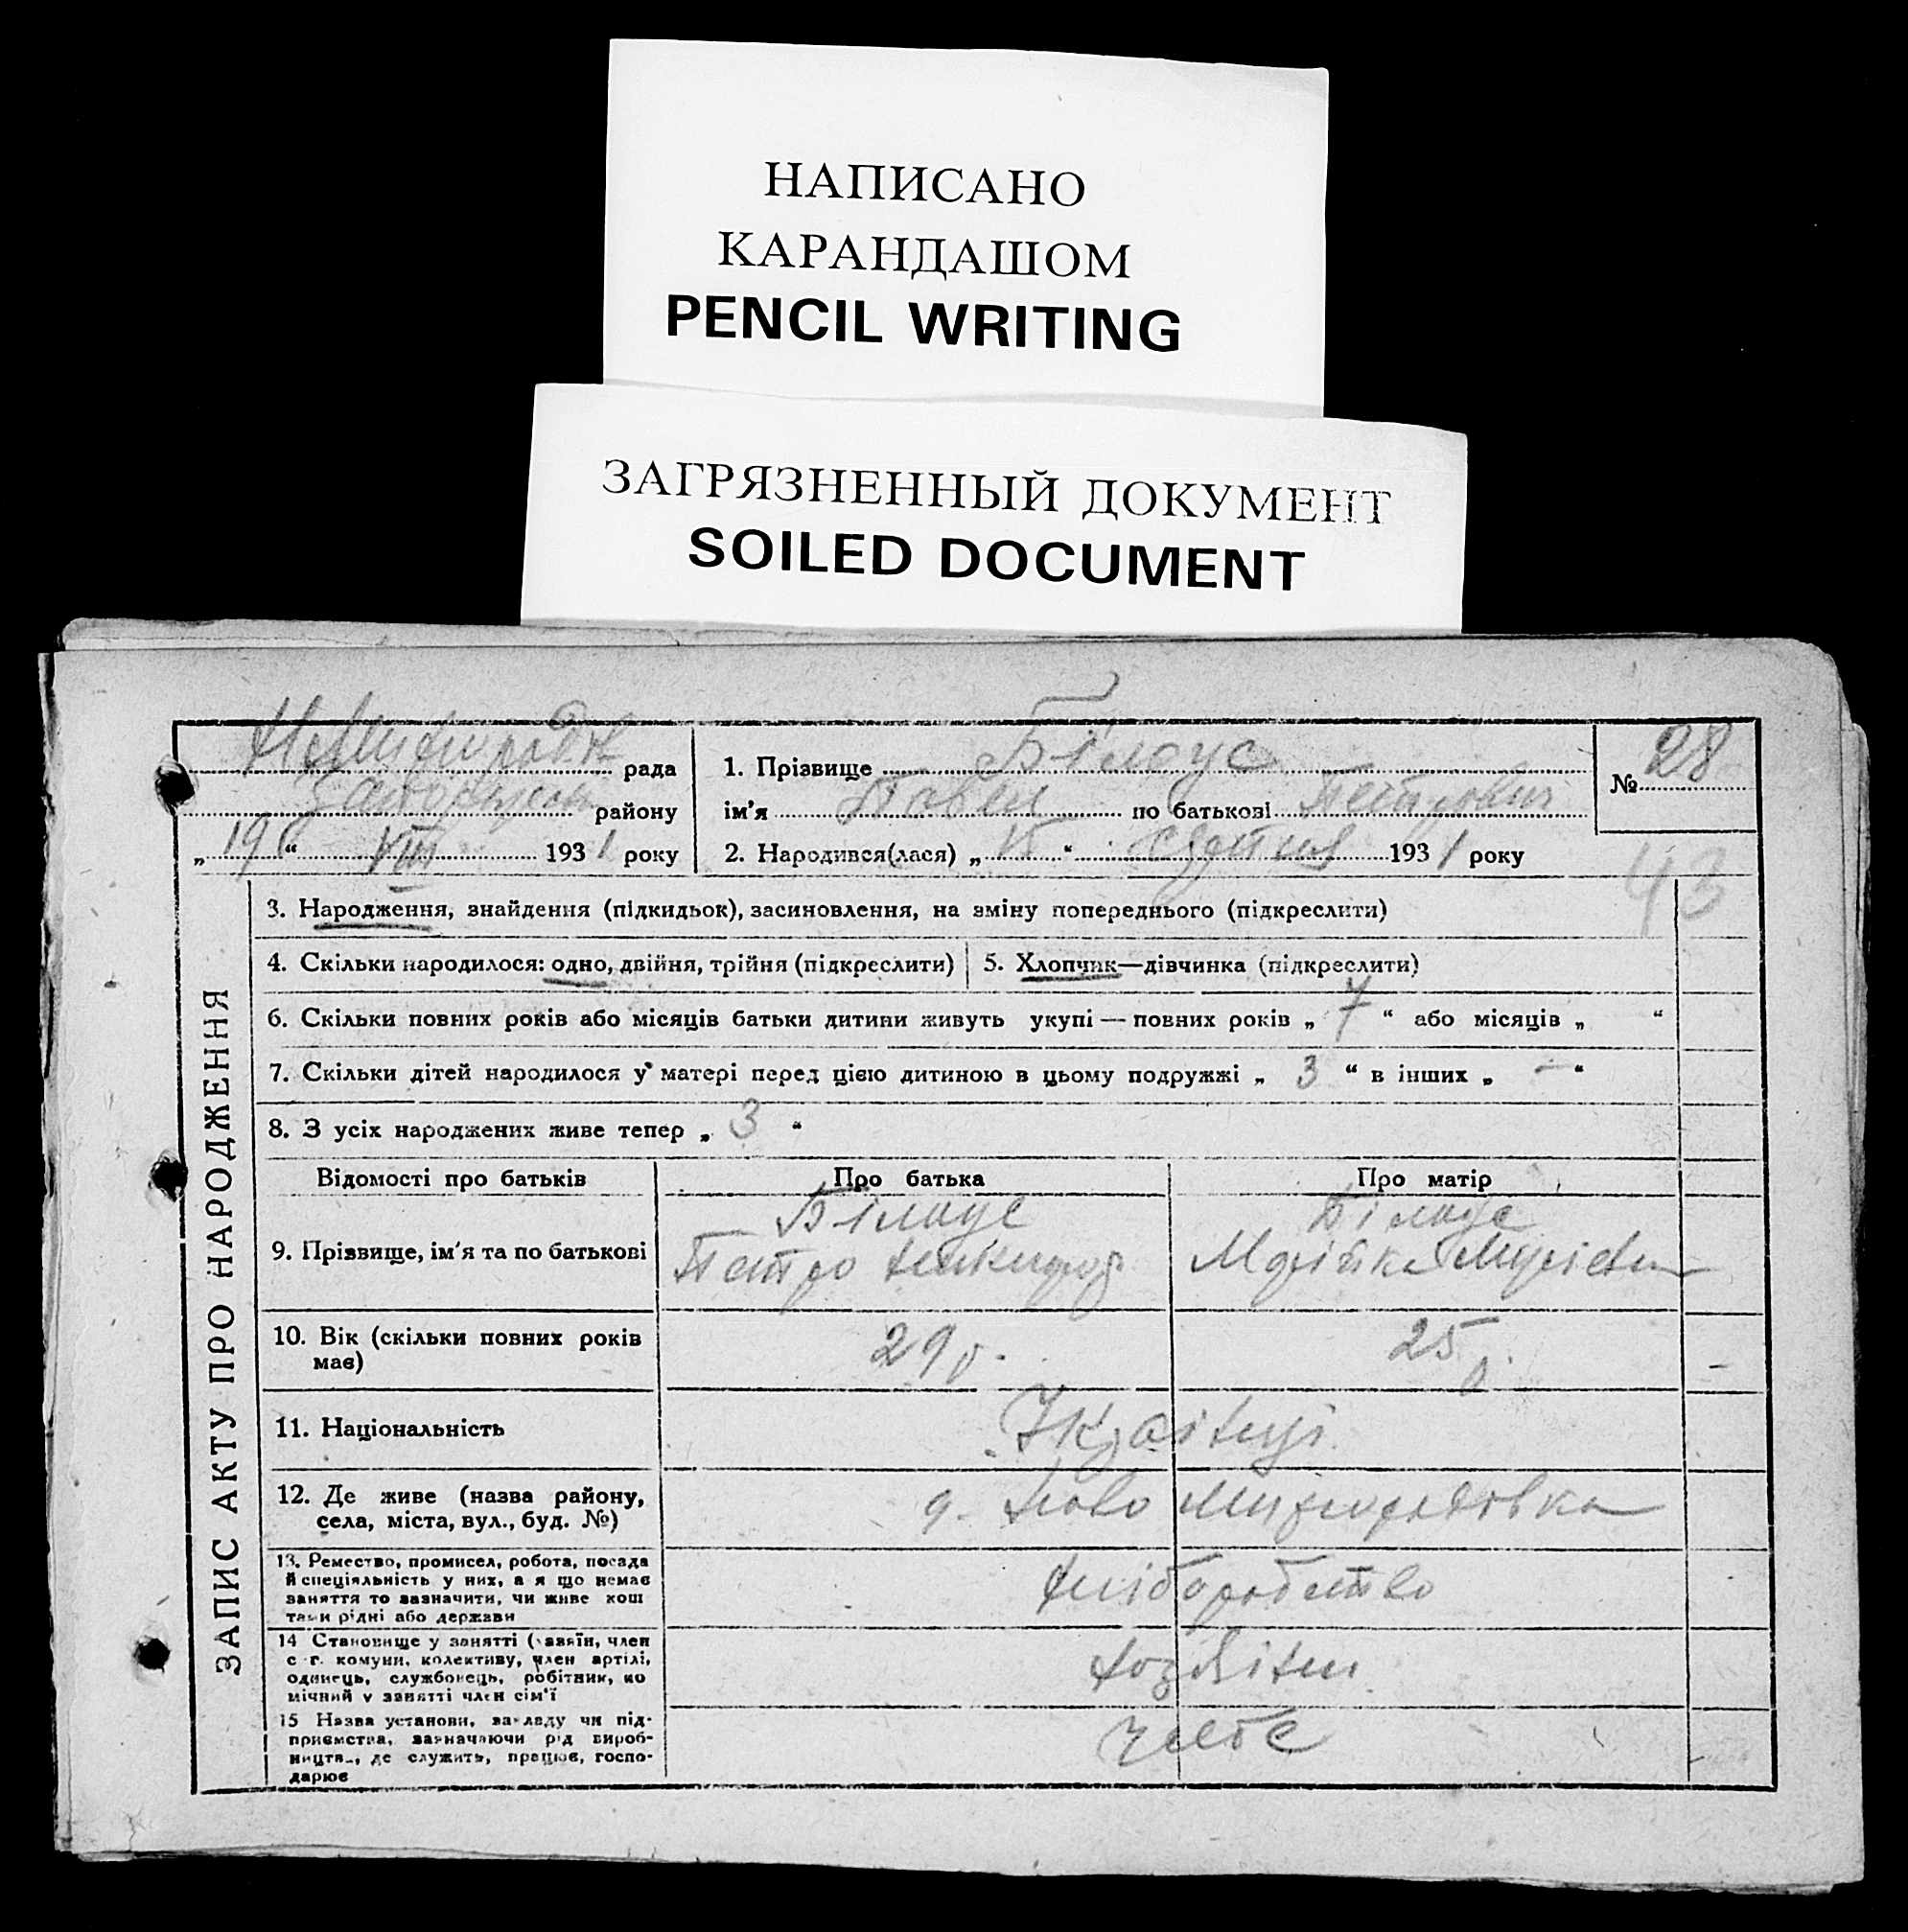 НАПИСАНО
КАРАНДАШОМ
PENCIL WRITING
ЗАГРЯЗНЕННЫЙ ДОКУМЕНТ
SOILED DOCUMENT
рада
району
„ 19 “ VIII 1931 року
1. Прізвище Білоус
ім'я Павел по батькові Петрович
2. Народився(лася) „ “ 1931 року
№ 28
43
ЗАПИС АКТУ ПРО НАРОДЖЕННЯ
3. Народження, знайдення (підкидьок), засиновлення, на зміну попереднього (підкреслити)
4. Скільки народилося: одно, двійня, трійня (підкреслити)
5. Хлопчик—дівчинка (підкреслити)
6. Скільки повних років або місяців батьки дитини живуть укупі — повних років „ 7 “ або місяців „ “
7. Скільки дітей народилося у матері перед цією дитиною в цьому подружжі „ 3 “ в інших „ — “
8. З усіх народжених живе тепер „ 3 “
Відомості про батьків
Про батька
Про матір
9. Прізвище, ім'я та по батькові
Білоус
Петро
Білоус
Марійка
10. Вік (скільки повних років
має)
29 р.
25 р.
11. Національність
Українці
12. Де живе (назва району,
села, міста, вул., буд. №)
Ново
13. Ремество, промисел, робота, посада
й спеціяльність у них, а я що немає
заняття то зазначити, чи живе кош
тами рідні або держави
хліборобство
14 Становище у занятті (хазяїн, член
с.-г. комуни, колективу, член артілі,
одинець, службовець, робітник, по
мічний у занятті член сім'ї
15 Назва установи, закладу чи під-
приємства, зазначаючи рід вироб-
ництв., де служить, працює, госпо-
дарює